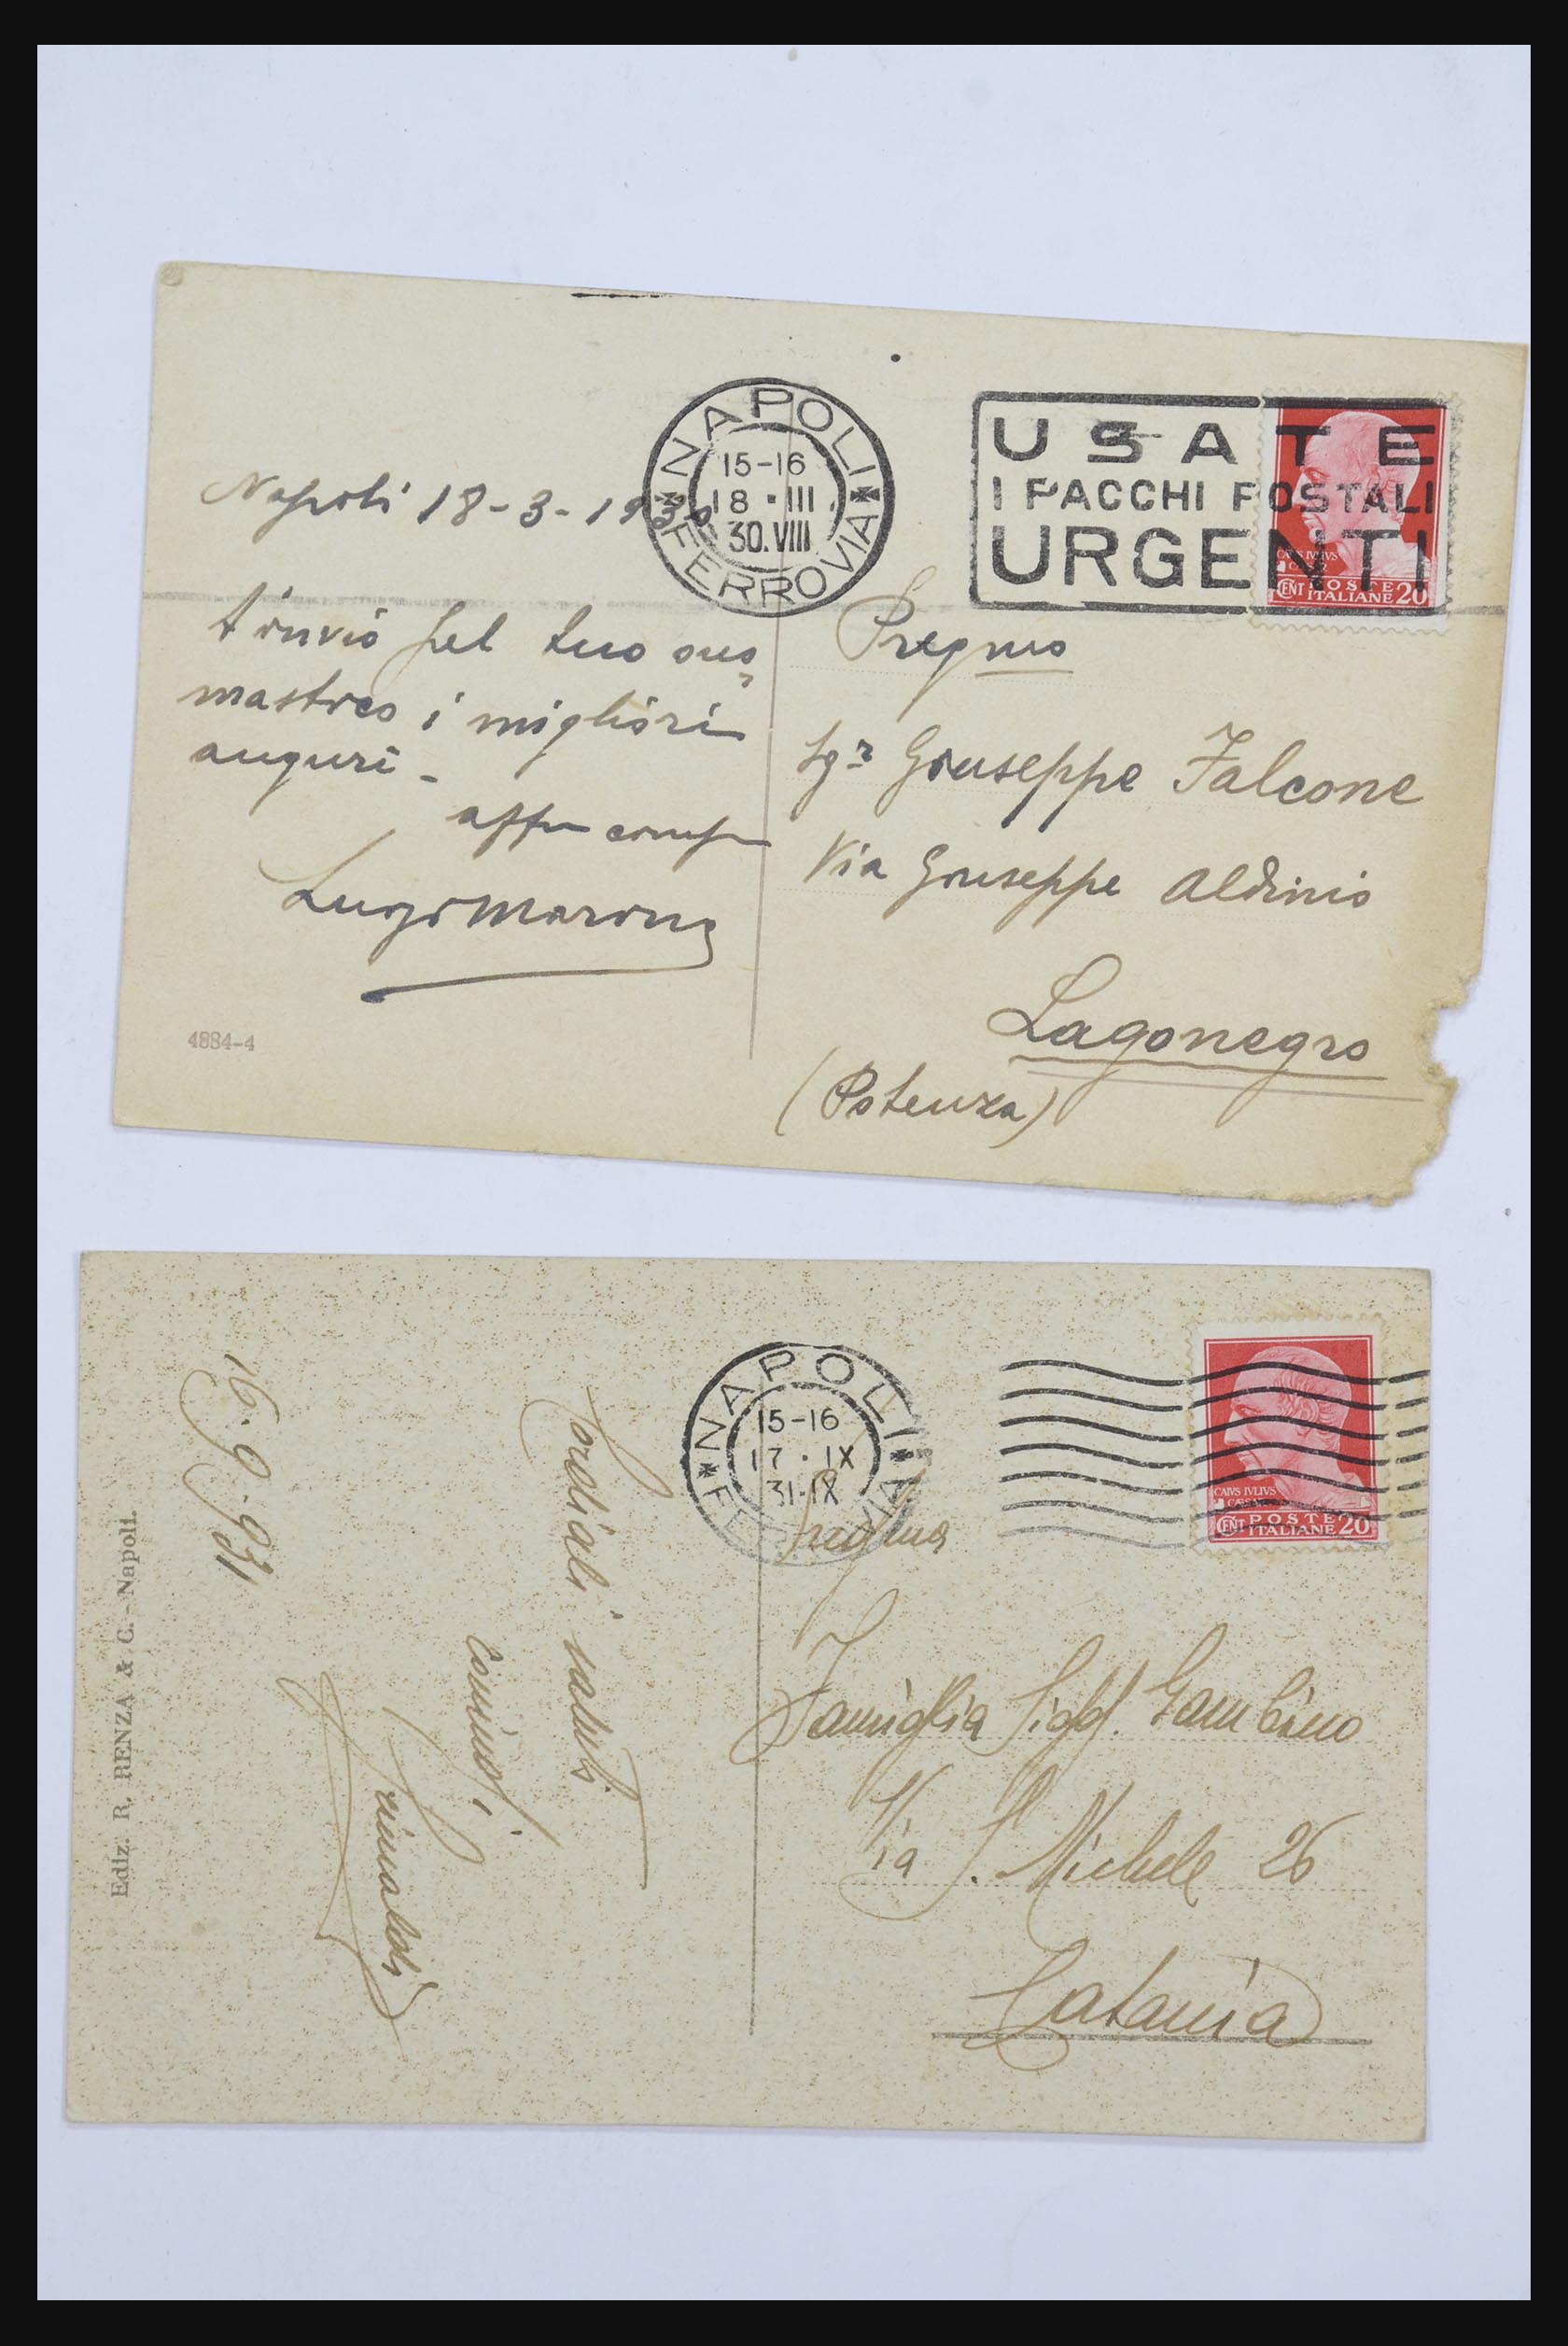 NAPOLI
15-16
18 · III
30.VIII
FERROVIA
USATE
I PACCHI POSTALI
URGENTI
CAIVS IVLIVS
CENT POSTE
ITALIANE 20
Napoli 18-3-1930
T'invio pel tuo ono
mastico i migliori
auguri -
Luigi Marone
4884-4
Pregmo
Sgr Giuseppe Falcone
Via Giuseppe Aldinio
Lagonegro
(Potenza)
NAPOLI
15-16
17 · IX
31-IX
FERROVIA
CAIVS IVLIVS
CAESAR
CENT POSTE
ITALIANE 20
16.9.931
Cordiali saluti
Rinaldi
Ediz. R. RENZA & C. - Napoli.
Pregma
Famiglia Sigg. Gambino
Via S. Michele 26
Catania